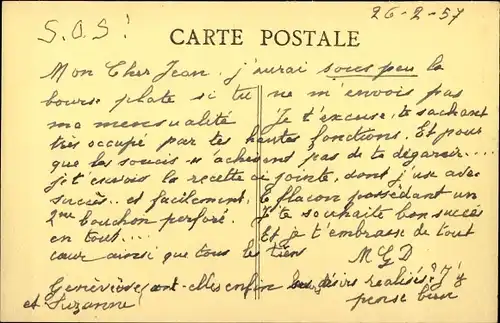 S.O.S! 26-2-57
CARTE POSTALE
Mon Cher Jean. j'aurai sous peu la
bourse plate si tu ne m'envois pas
ma mensualité Je t'excuse, te sachant
très occupé par tes hautes fonctions. Et pour
que les soucis n'achèvent pas de te dégarnir....
je t'envois la recette ci jointe, dont j'use avec
succès.. et facilement. Le flacon possédant un
2me bouchon perforé. Je te souhaite bon succès
en tout.... Et je t'embrasse de tout
cœur ainsi que tous les tien
MGD
Geneviève ont-elles enfin leurs désirs realisés? J'y
et Suzanne pense bien